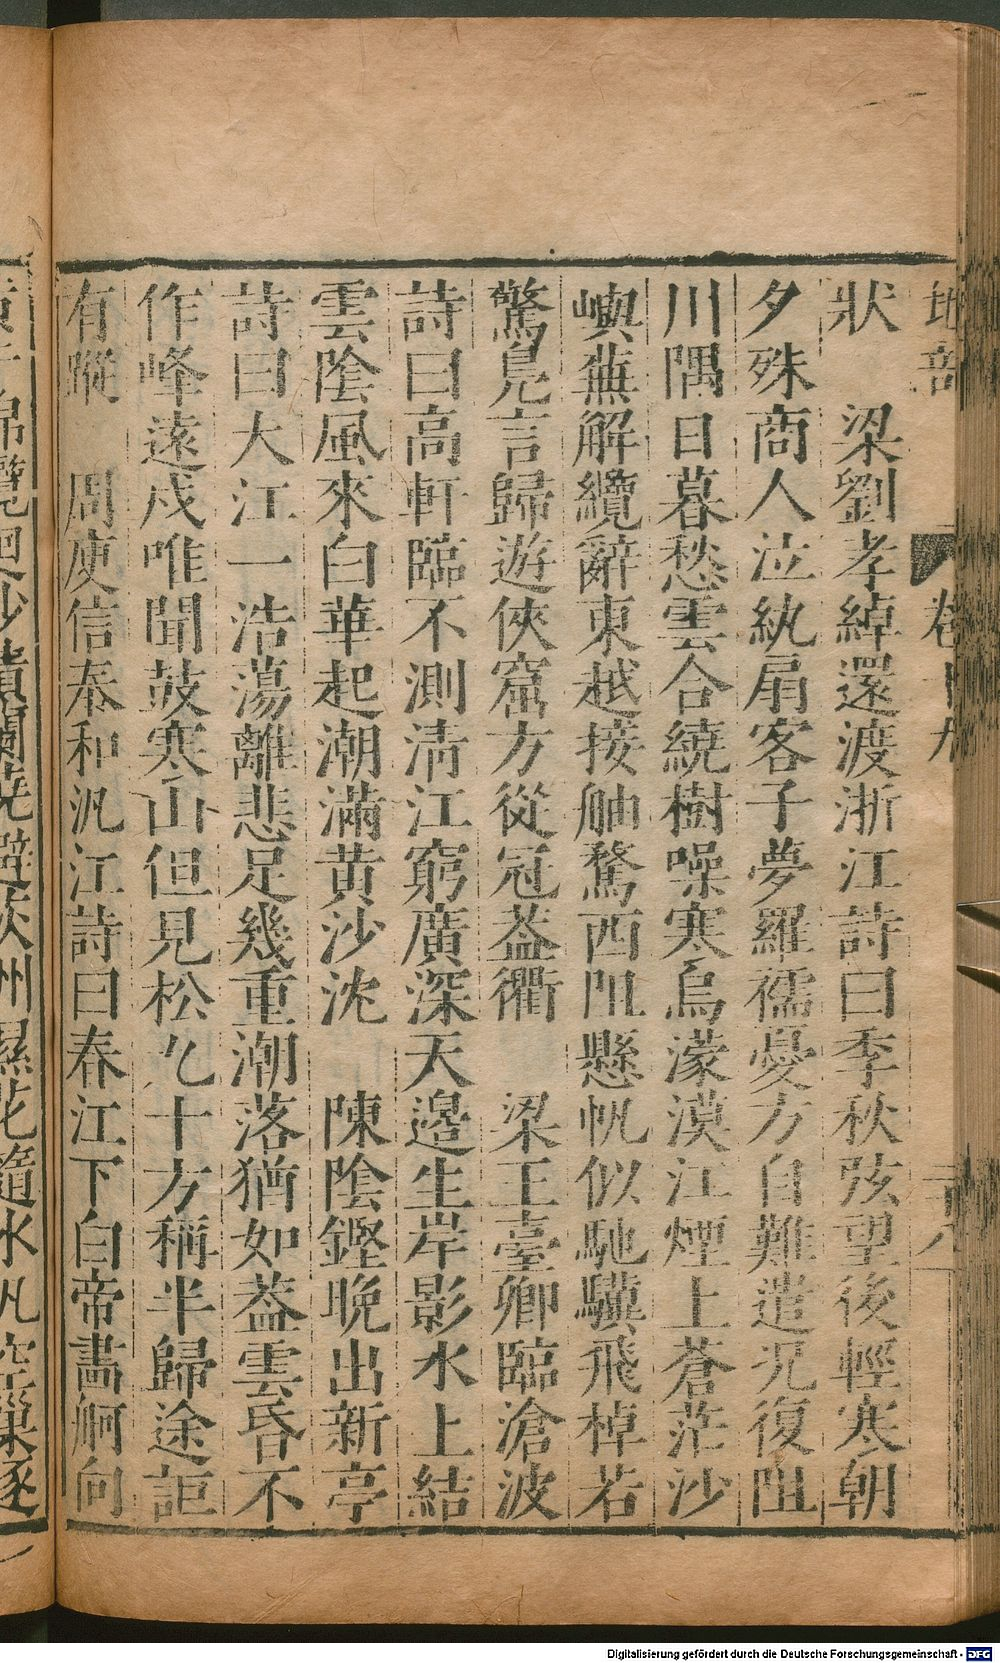 地部 卷十九 二十八
狀 梁劉孝綽還渡浙江詩曰季秋弦望後輕寒朝
夕殊商人泣紈扇客子夢羅襦憂方自難遣况復阻
川隅日暮愁雲合繞樹噪寒烏濛漠江煙上蒼茫沙
嶼蕪解纜辭東越接舳騖西阻懸帆似馳驥飛棹若
驚鳧言歸遊俠窟方從冠葢衢 梁王臺卿臨滄波
詩曰高軒臨不測清江窮廣深天邉生岸影水上結
雲陰風來白華起潮滿黄沙沈 陳陰鏗晚出新亭
詩曰大江一浩蕩離悲足幾重潮落猶如葢雲昏不
作峰遠戍唯聞鼓寒山但見松九十方稱半歸途詎
有蹤 周庾信奉和汎江詩曰春江下白帝畵舸向
錦纜迴沙磧蘭 避荻州濕花隨水汎空巢逐
Digitalisierung gefördert durch die Deutsche Forschungsgemeinschaft - DFG